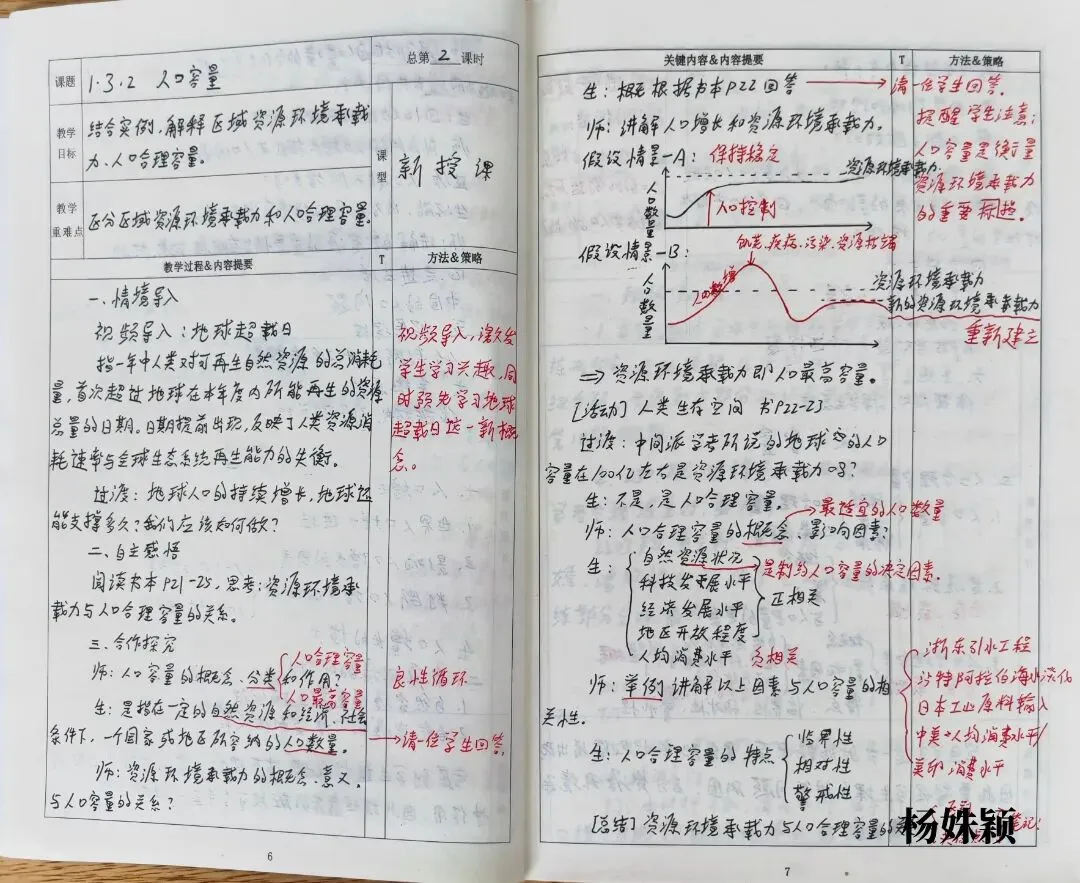 课题
1.3.2 人口容量
总第2课时
教学目标
结合实例,解释区域资源环境承载
力、人口合理容量。
课型
新授课
教学重难点
区分区域资源环境承载力和人口合理容量。
教学过程&内容提要
T
方法&策略
一、情境导入
视频导入:地球超载日
指一年中人类对可再生自然资源的总消耗
量,首次超过地球在本年度内所能再生的资源
总量的日期。日期提前出现,反映了人类资源消
耗速率与全球生态系统再生能力的失衡。
视频导入,激发
学生学习兴趣,同
时预先学习地球
超载日这一新概
念。
过渡:地球人口的持续增长,地球还
能支撑多久?我们应该如何做?
二、自主感悟
阅读书本P21-25,思考:资源环境承
载力与人口合理容量的关系。
三、合作探究
师:人口容量的概念、分类和作用?
人口合理容量
人口最高容量
良性循环
生:是指在一定的自然资源和经济、社会
条件下,一个国家或地区所容纳的人口数量。
请一位学生回答。
师:资源环境承载力的概念、意义
与人口容量的关系?
6
关键内容&内容提要
T
方法&策略
生:概念根据书本P22回答
请一位学生回答。
师:讲解人口增长和资源环境承载力。
提醒学生注意:
人口容量是衡量
资源环境承载力
的重要标志。
假设情景一A:保持稳定
资源环境承载力
人口数量
人口控制
假设情景一B:
饥荒、疾病、污染、资源枯竭
人口数量
人口激增
资源环境承载力
新的资源环境承载力
重新建立
⇒资源环境承载力即人口最高容量。
[活动]人类生存空间 书P22-23
过渡:中间派学者所说的地球的人口
容量在100亿左右是资源环境承载力吗?
生:不是,是人口合理容量。
最适宜的人口数量
师:人口合理容量的概念、影响因素?
生:
自然资源状况
是制约人口容量的决定因素.
科技发展水平
经济发展水平
地区开放程度
正相关
人均消费水平 负相关
师:举例讲解以上因素与人口容量的相
关性.
浙东引水工程
沙特阿拉伯海水淡化
日本工业原料输入
中美人均消费水平/
美印消费水平
生:人口合理容量的特点
临界性
相对性
警戒性
[总结]资源环境承载力与人口合理容量的
笔记!
杨姝颖
7